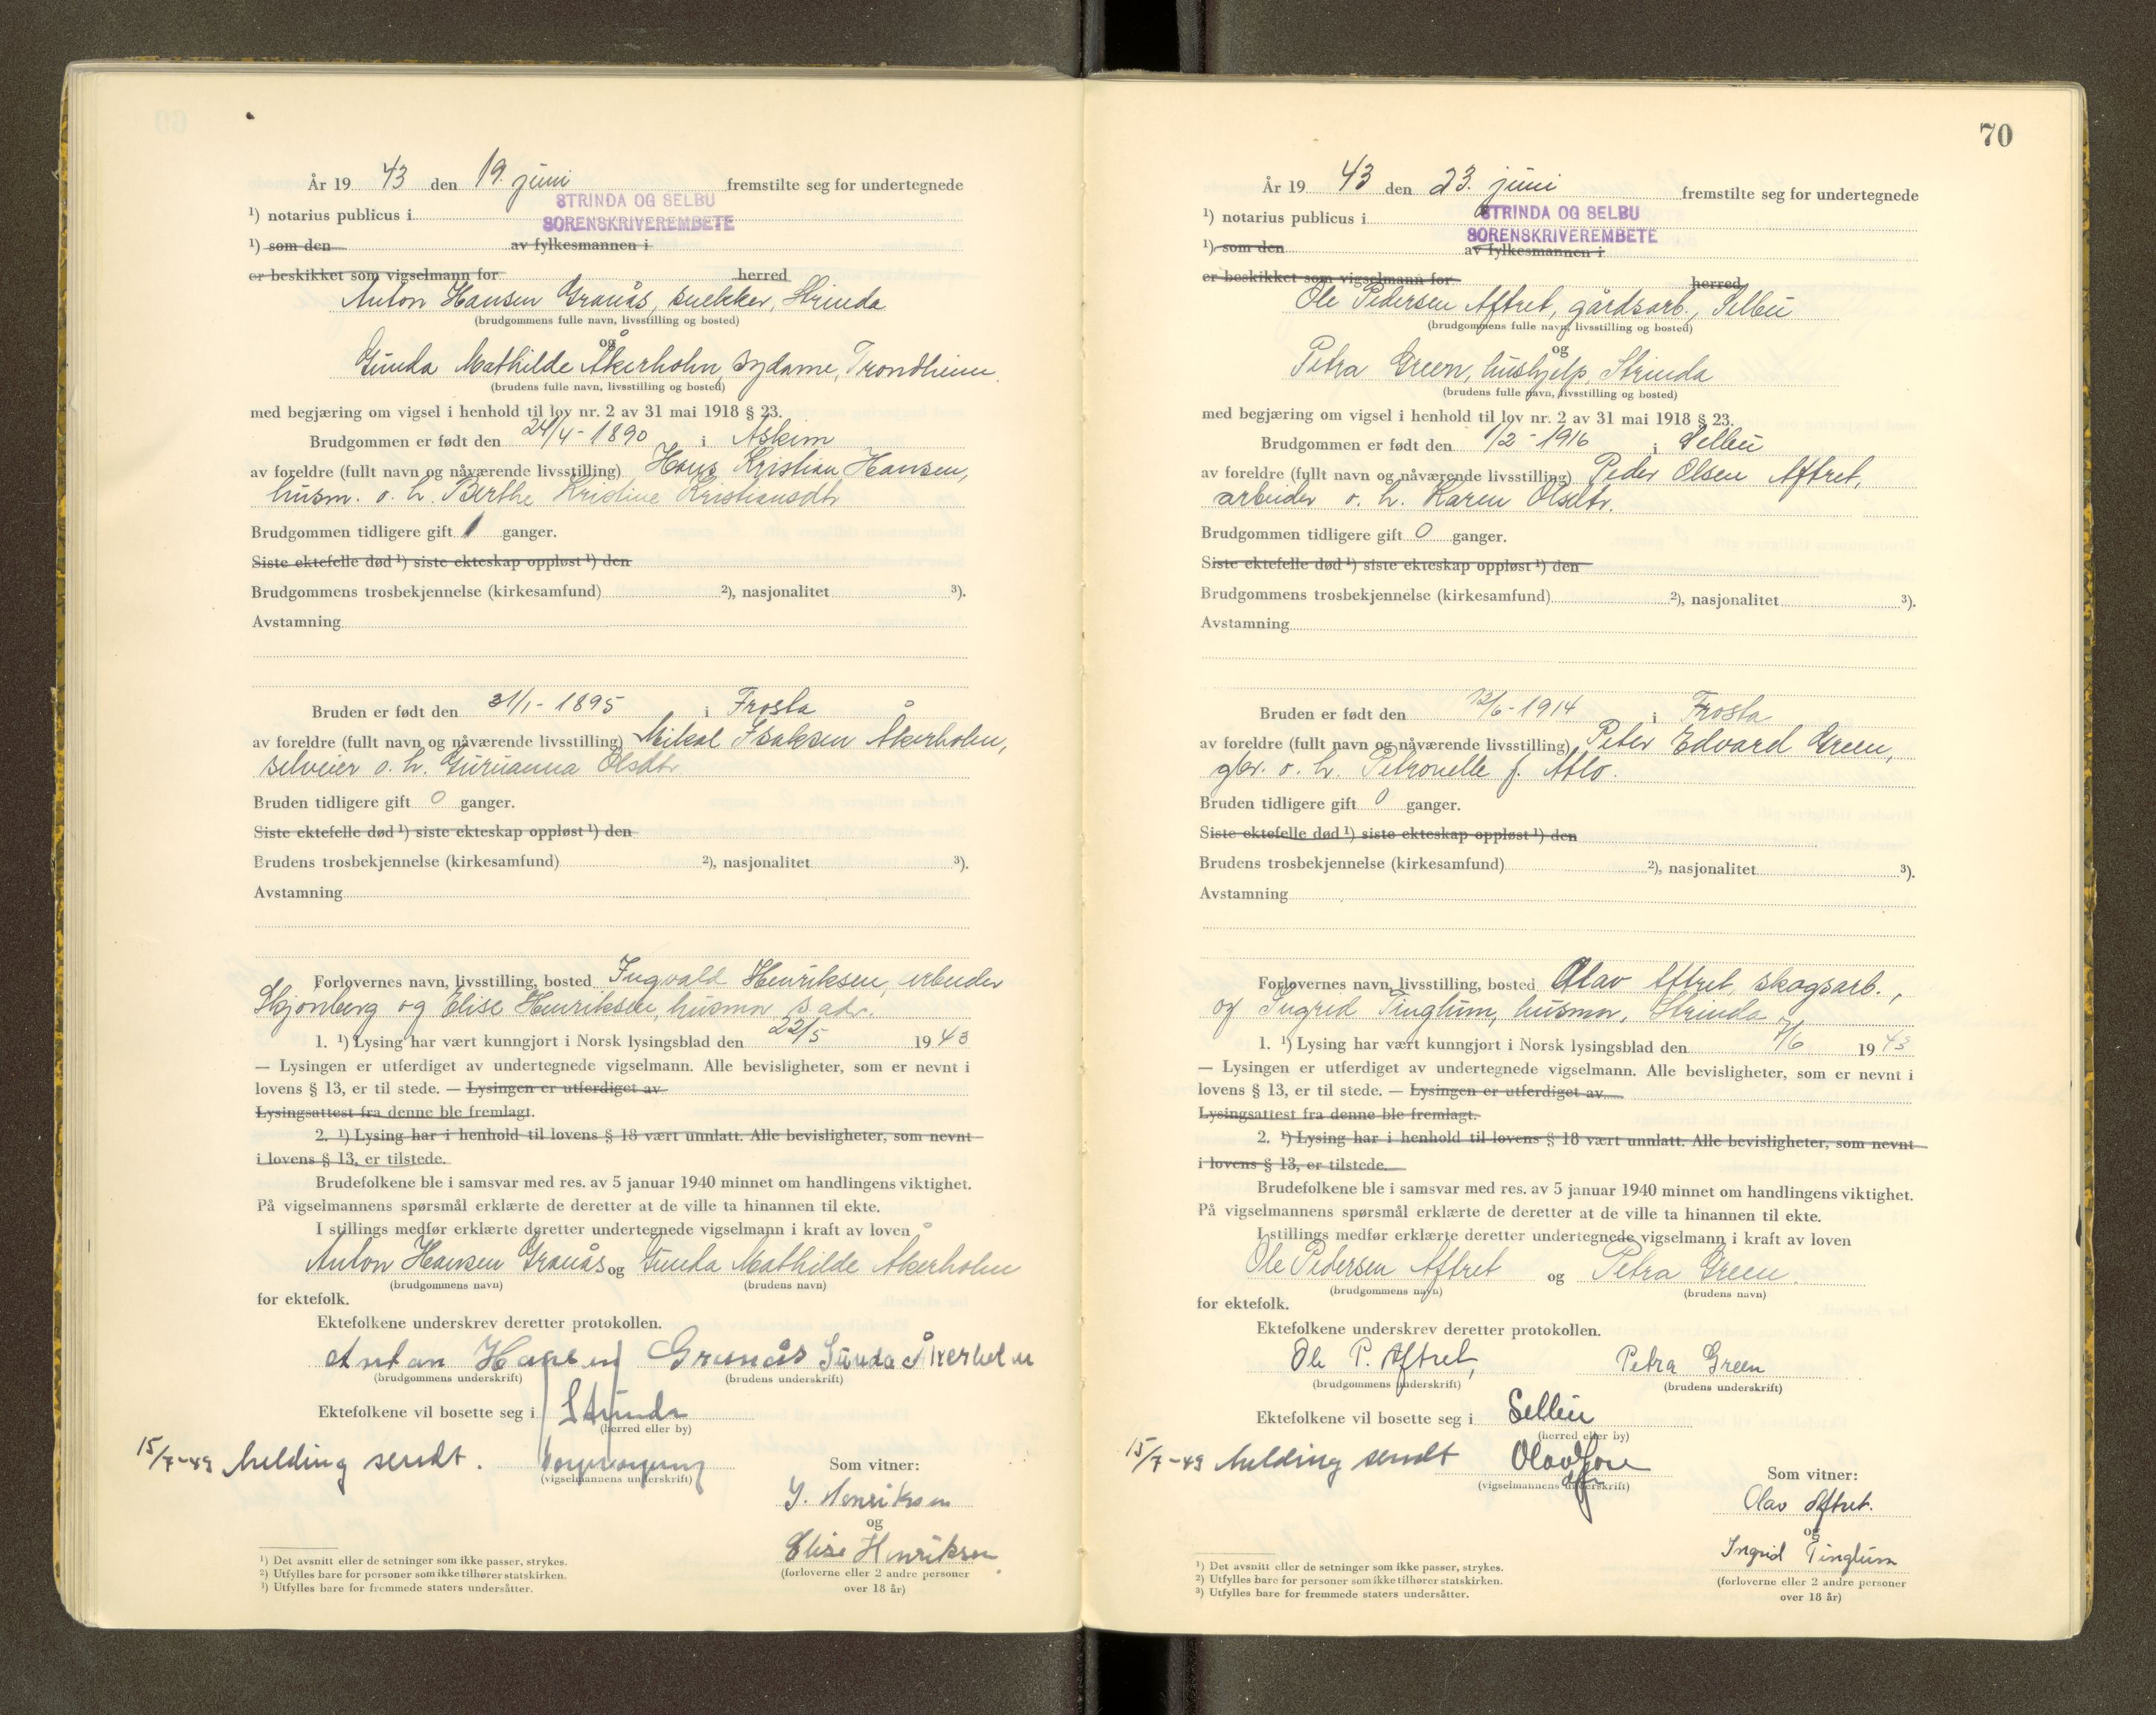 År 19 43 den 19. juni fremstilte seg for undertegnede
¹) notarius publicus i STRINDA OG SELBU
SORENSKRIVEREMBETE
¹) som den av fylkesmannen i
er beskikket som vigselmann for herred
Anton Hansen Granås, snekker, Strinda
(brudgommens fulle navn, livsstilling og bosted)
og
Gunda Mathilde Åkerholm, sydame, Trondheim.
(brudens fulle navn, livsstilling og bosted)
med begjæring om vigsel i henhold til lov nr. 2 av 31 mai 1918 § 23.
Brudgommen er født den 24/4 - 1890 i Askim
av foreldre (fullt navn og nåværende livsstilling) Hans Kristian Hansen,
husm. o. h. Berthe Kristine Kristiansdtr
Brudgommen tidligere gift 1 ganger.
Siste ektefelle død ¹) siste ekteskap oppløst ¹) den
Brudgommens trosbekjennelse (kirkesamfund) ²), nasjonalitet ³).
Avstamning
Bruden er født den 31/1 - 1895 i Frosta
av foreldre (fullt navn og nåværende livsstilling) Mikal Isaksen Åkerholm,
selveier o. h. Gurianna Olsdtr
Bruden tidligere gift 0 ganger.
Siste ektefelle død ¹) siste ekteskap oppløst ¹) den
Brudens trosbekjennelse (kirkesamfund) ²), nasjonalitet ³).
Avstamning
Forlovernes navn, livsstilling, bosted Ingvald Henriksen, arbeider
Skjonberg og Elise Henriksen, husmor s. adr.
1. ¹) Lysing har vært kunngjort i Norsk lysingsblad den 22/5 19 43
— Lysingen er utferdiget av undertegnede vigselmann. Alle bevisligheter, som er nevnt i
lovens § 13, er til stede. — Lysingen er utferdiget av
Lysingsattest fra denne ble fremlagt.
2. ¹) Lysing har i henhold til lovens § 18 vært unnlatt. Alle bevisligheter, som nevnt
i lovens § 13, er tilstede.
Brudefolkene ble i samsvar med res. av 5 januar 1940 minnet om handlingens viktighet.
På vigselmannens spørsmål erklærte de deretter at de ville ta hinannen til ekte.
I stillings medfør erklærte deretter undertegnede vigselmann i kraft av loven
Anton Hansen Granås og Gunda Mathilde Åkerholm
(brudgommens navn) (brudens navn)
for ektefolk.
Ektefolkene underskrev deretter protokollen.
Anton Hansen Granås Gunda Åkerholm
(brudgommens underskrift) (brudens underskrift)
Ektefolkene vil bosette seg i Strinda
(herred eller by)
15/7-43 Melding sendt.
(vigselmannens underskrift)
Som vitner:
I. Henriksen
og
Elise Henriksen
(forloverne eller 2 andre personer
over 18 år)
¹) Det avsnitt eller de setninger som ikke passer, strykes.
²) Utfylles bare for personer som ikke tilhører statskirken.
³) Utfylles bare for fremmede staters undersåtter.
70
År 19 43 den 23. juni fremstilte seg for undertegnede
¹) notarius publicus i STRINDA OG SELBU
SORENSKRIVEREMBETE
¹) som den av fylkesmannen i
er beskikket som vigselmann for herred
Ole Pedersen Aftret, gårdsarb., Selbu
(brudgommens fulle navn, livsstilling og bosted)
og
Petra Green, hushjelp, Strinda
(brudens fulle navn, livsstilling og bosted)
med begjæring om vigsel i henhold til lov nr. 2 av 31 mai 1918 § 23.
Brudgommen er født den 1/2 - 1916 i Selbu
av foreldre (fullt navn og nåværende livsstilling) Peder Olsen Aftret,
arbeider o. h. Karen Olsdtr.
Brudgommen tidligere gift 0 ganger.
Siste ektefelle død ¹) siste ekteskap oppløst ¹) den
Brudgommens trosbekjennelse (kirkesamfund) ²), nasjonalitet ³).
Avstamning
Bruden er født den 13/6 - 1914 i Frosta
av foreldre (fullt navn og nåværende livsstilling) Peter Edvard Green,
gbr. o. h. Petronelle f. Aflo.
Bruden tidligere gift 0 ganger.
Siste ektefelle død ¹) siste ekteskap oppløst ¹) den
Brudens trosbekjennelse (kirkesamfund) ²), nasjonalitet ³).
Avstamning
Forlovernes navn, livsstilling, bosted Olav Aftret, skogsarb.,
og Ingrid Tinglum, husmor, Strinda
1. ¹) Lysing har vært kunngjort i Norsk lysingsblad den 7/6 19 43
— Lysingen er utferdiget av undertegnede vigselmann. Alle bevisligheter, som er nevnt i
lovens § 13, er til stede. — Lysingen er utferdiget av
Lysingsattest fra denne ble fremlagt.
2. ¹) Lysing har i henhold til lovens § 18 vært unnlatt. Alle bevisligheter, som nevnt
i lovens § 13, er tilstede.
Brudefolkene ble i samsvar med res. av 5 januar 1940 minnet om handlingens viktighet.
På vigselmannens spørsmål erklærte de deretter at de ville ta hinannen til ekte.
I stillings medfør erklærte deretter undertegnede vigselmann i kraft av loven
Ole Pedersen Aftret og Petra Green.
(brudgommens navn) (brudens navn)
for ektefolk.
Ektefolkene underskrev deretter protokollen.
Ole P. Aftret, Petra Green
(brudgommens underskrift) (brudens underskrift)
Ektefolkene vil bosette seg i Selbu
(herred eller by)
15/7-43 Melding sendt Olav
(vigselmannens underskrift)
Som vitner:
Olav Aftret.
og
Ingrid Tinglum
(forloverne eller 2 andre personer
over 18 år)
¹) Det avsnitt eller de setninger som ikke passer, strykes.
²) Utfylles bare for personer som ikke tilhører statskirken.
³) Utfylles bare for fremmede staters undersåtter.